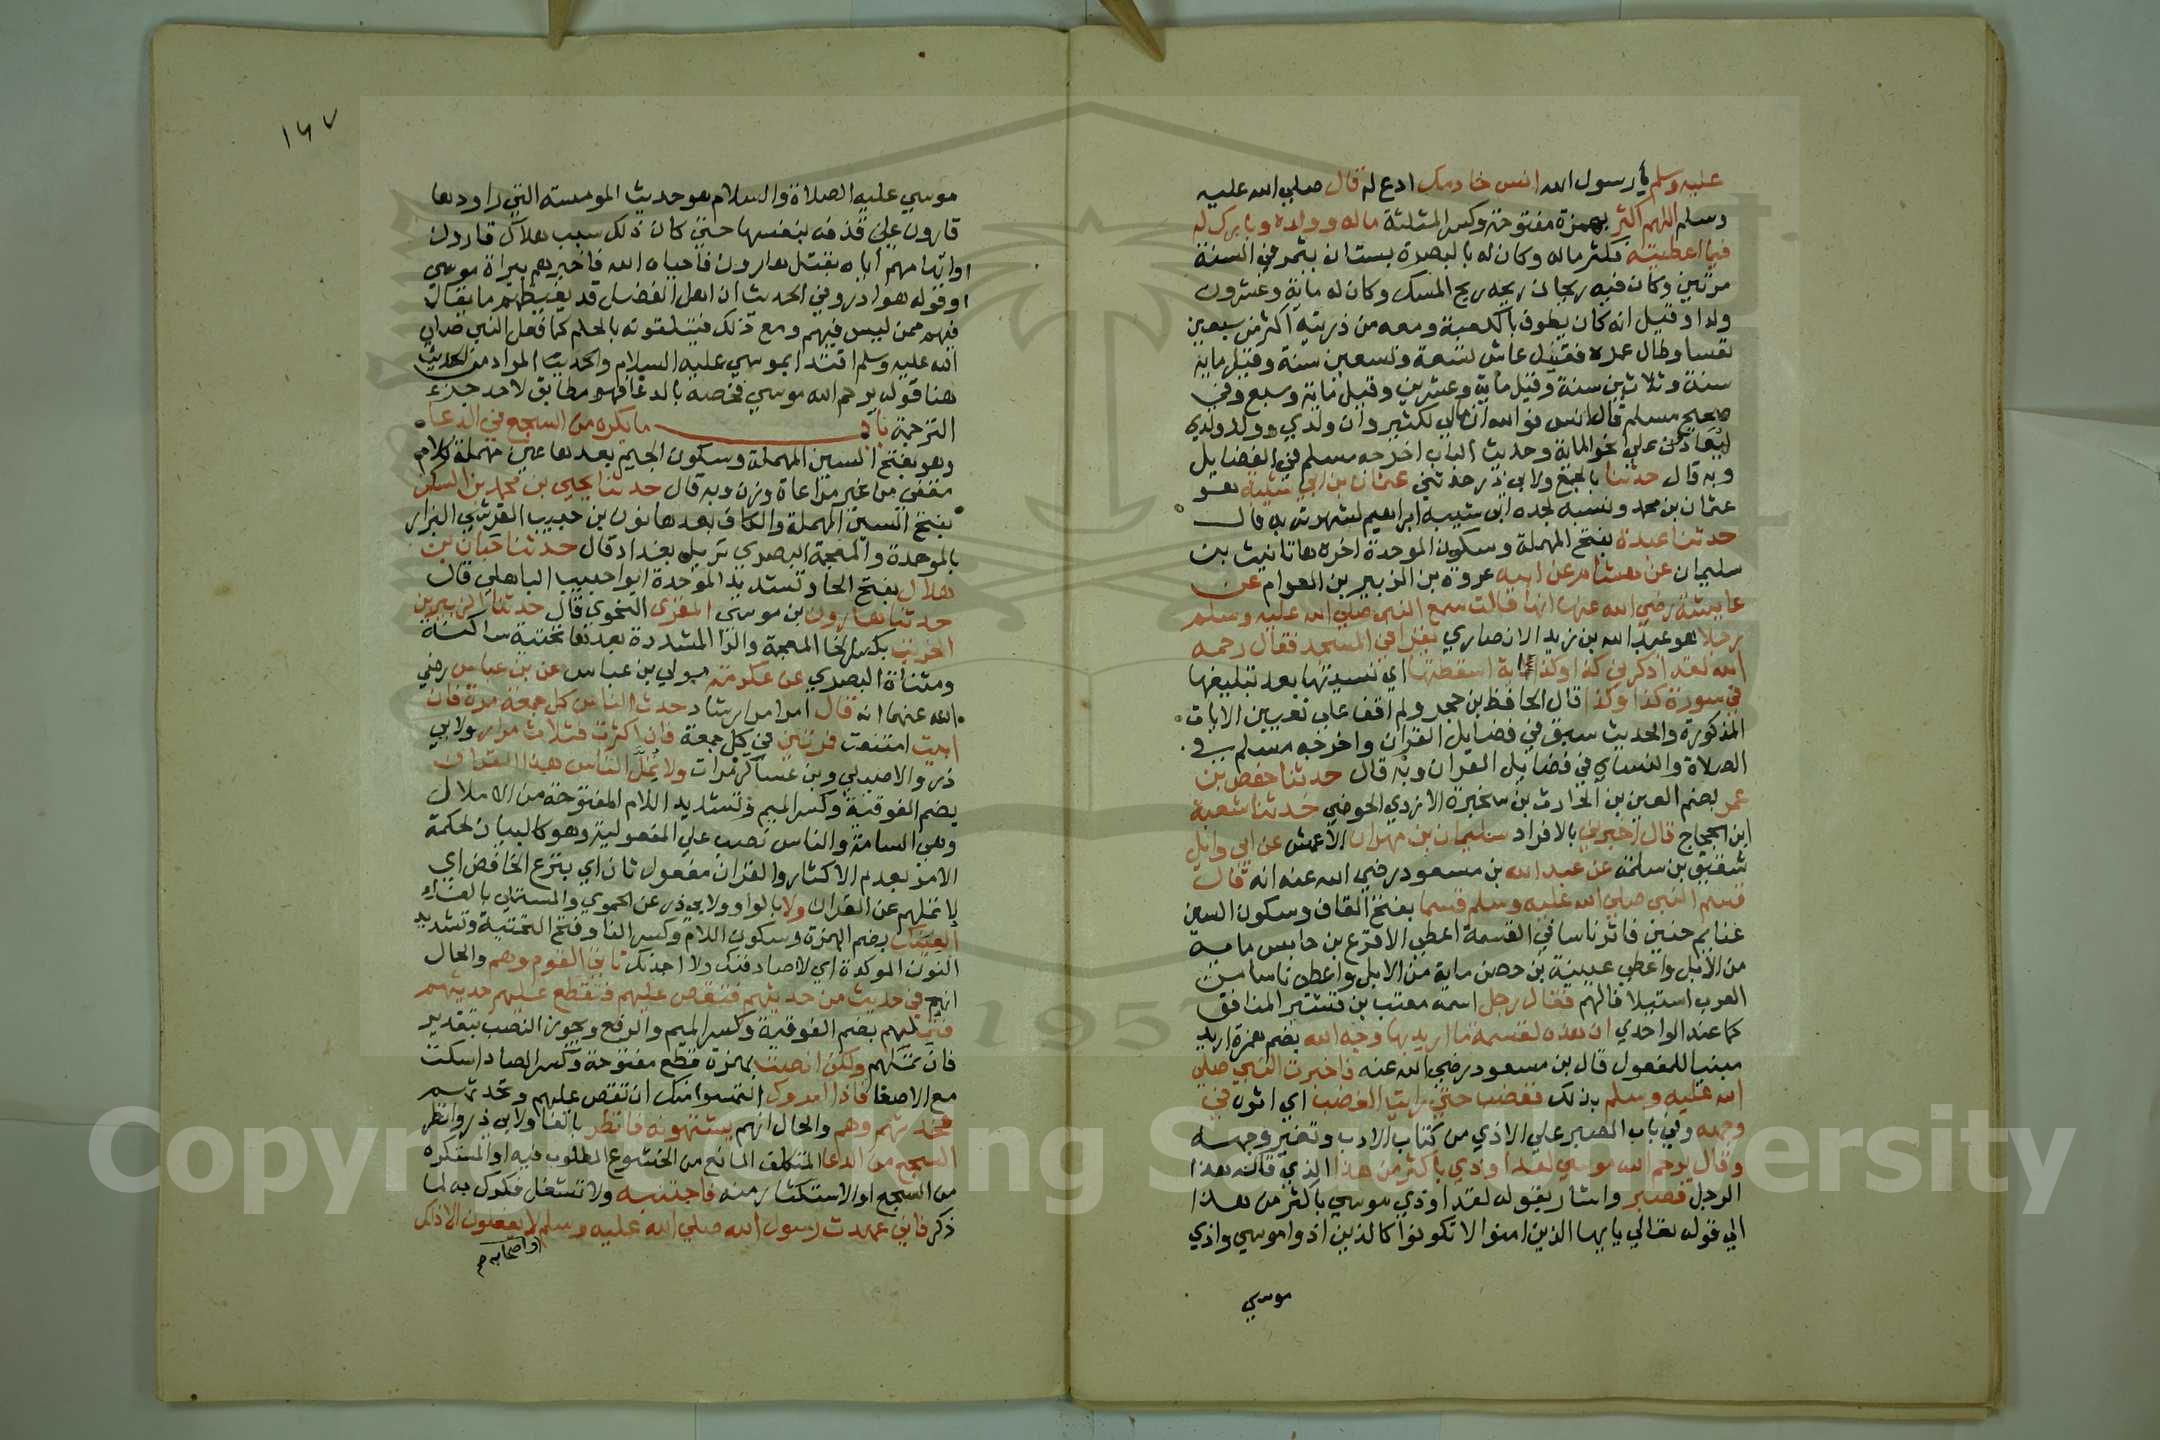 عليه وسلم يا رسول الله انس خادمك ادع له قال صلي الله عليه
وسلم اللهم اكثر بهمزة مفتوحة وكسر المثلثة ماله وولده وبارك له
فيما اعطيته فكثر ماله وكان له بالبصرة بستان يثمر في السنة
مرتين وكان فيه ريحان ريحه ريح المسك وكان له ماية وعشرون
ولدا وقيل انه كان يطوف بالكعبة ومعه من ذريته اكثر من سبعين
نفسا وطال عمره فقيل عاش تسعة وتسعين سنة وقيل ماية
سنة وثلاثين سنة وقيل ماية وعشرين وقيل ماية وسبع وفي
صحيح مسلم قال انس فوالله ان مالي لكثير وان ولدي وولد ولدي
ليعادون علي نحو الماية وحديث الباب اخرجه مسلم في الفضايل
وبه قال حدثنا بالجمع ولابي ذر حدثني عثمان بن ابي شيبة هو
عثمان بن محمد ونسبه لجده ابي شيبه ابراهيم لشهرته به قال
حدثنا عبدة بفتح المهملة وسكون الموحدة اخره هاتانيث بن
سليمان عن هشام عن ابيه عروة بن الزبير بن العوام عن
عايشة رضي الله عنها انها قالت سمع النبي صلي الله عليه وسلم
رجلا هو عبد الله بن زيد الانصاري يقرا في المسجد فقال رحمه
الله لقد اذكرني كذا وكذا اية اسقطتها اي نسيتها بعد تبليغها
في سورة كذا وكذا قال الحافظ بن حجر ولم اقف علي تعيين الايات
المذكورة والحديث سبق في فضايل القران واخرجه مسلم في
الصلاة والنساي في فضايل القران وبه قال حدثنا حفص بن
عمر بضم العين بن الحارث بن سخبرة الازدي الحوضي حدثنا شعبة
ابن الحجاج قال اخبرني بالافراد سليمان بن مهران الاعمش عن ابي وايل
شقيق بن سلمة عن عبد الله بن مسعود رضي الله عنه انه قال
قسم النبي صلي الله عليه وسلم قسما بفتح القاف وسكون السين
غنايم حنين فاثر ناسا في القسمة اعطي الاقرع بن حابس ماية
من الابل واعطي عيينة بن حصن ماية من الابل واعطي ناسا من
العرب استيلافا لهم فقال رجل اسمه معتب بن قشير المنافق
كما عند الواحدي ان هذه لقسمة ما اريد بها وجه الله بضم همزة اريد
مبنيا للمفعول قال بن مسعود رضي الله عنه فاخبرت النبي صلي
الله عليه وسلم بذلك فغضب حتي رايت الغضب اي اثره في
وجهه وفي باب الصبر علي الاذي من كتاب الادب وتغير وجهه
وقال يرحم الله موسي لقد اوذي باكثر من هذا الذي قاله هذا
الرجل فصبر واشار بقوله لقد اوذي موسي باكثر من هذا
الي قوله تعالي يايها الذين امنوا لا تكونوا كالذين اذوا موسي واذي
موسي
١٦٧
موسي عليه الصلاة والسلام هو حديث المومسة التي راودها
قارون علي قذفه بنفسها حتي كان ذلك سبب هلاك قارون
او اتهامهم اياه بقتل هارون فاحياه الله فاخبرهم ببراة موسي
او قوله هو ادر وفي الحديث ان اهل الفضل قد يغيظهم ما يقال
فيهم ممن ليس فيهم ومع ذلك فيتلقونه بالحلم كما فعل النبي صلي
الله عليه وسلم اقتدا بموسي عليه السلام والحديث المراد من الحديث
هنا قوله يرحم الله موسي فخصه بالدعا فهو مطابق لاحد جزء
الترجمة باب ما يكره من السجع في الدعا
وهو بفتح السين المهملة وسكون الجيم بعدها عين مهملة كلام
مقفي من غير مراعاة وزن وبه قال حدثنا يحيي بن محمد بن السكن
بفتح السين المهملة والكاف بعدها نون بن حبيب القرشي البزار
بالموحدة والمعجمة البصري نزيل بغداد قال حدثنا حبان بن
هلال بفتح الحا وتشديد الموحدة ابو حبيب الباهلي قال
حدثنا هارون بن موسي المقري النحوي قال حدثنا الزبير بن
الخريت بكسر الخا المعجمة والرا المشددة بعدها تحتية ساكنة
ومثناة البصري عن عكرمة مولي بن عباس عن بن عباس رضي
الله عنهما انه قال امرا مرارشاد حدث الناس كل جمعة مرة فان
ابيت امتنعت فمرتين في كل جمعة فان اكثرت فثلاث مرار ولابي
ذر والاصيلي وبن عساكر مرات ولا تمل الناس هذا القران
بضم الفوقية وكسر الميم وتشديد اللام المفتوحة من الاملال
وهي السامة والناس نصب علي المفعولية وهو كالبيان لحكمة
الامر بعدم الاكثار والقران مفعول ثان اي بنزع الخافض اي
لا تملهم عن القران ولا بالواو ولابي ذر عن الحموي والمستملي بالفاء
الفينك بضم الهمزة وسكون اللام وكسر الفا وفتح التحتية وتشديد
النون الموكدة اي لا اصادفنك ولا اجدنك تاتي القوم وهم والحال
انهم في حديث من حديثهم فتقص عليهم فتقطع عليهم حديثهم
فتملهم بضم الفوقية وكسر الميم والرفع ويجوز النصب بتقدير
فان تملهم ولكن انصت بهمزة قطع مفتوحة وكسر الصاد اسكت
مع الاصغا فاذا امروك التمسوا منك ان تقص عليهم وتحدثهم
فحدثهم وهم والحال انهم يشتهونه فانظر بالفا ولابي ذر وانظر
السجع من الدعا المتكلف المانع من الخشوع المطلوب فيه او المستكره
من السجع او الاستكثار منه فاجتنبه ولا تشغل فكرك به لما
ذكر فاني عهدت رسول الله صلي الله عليه وسلم لا يفعلون الا ذلك
واصحابه صح
Copyright © King Saud University
1957